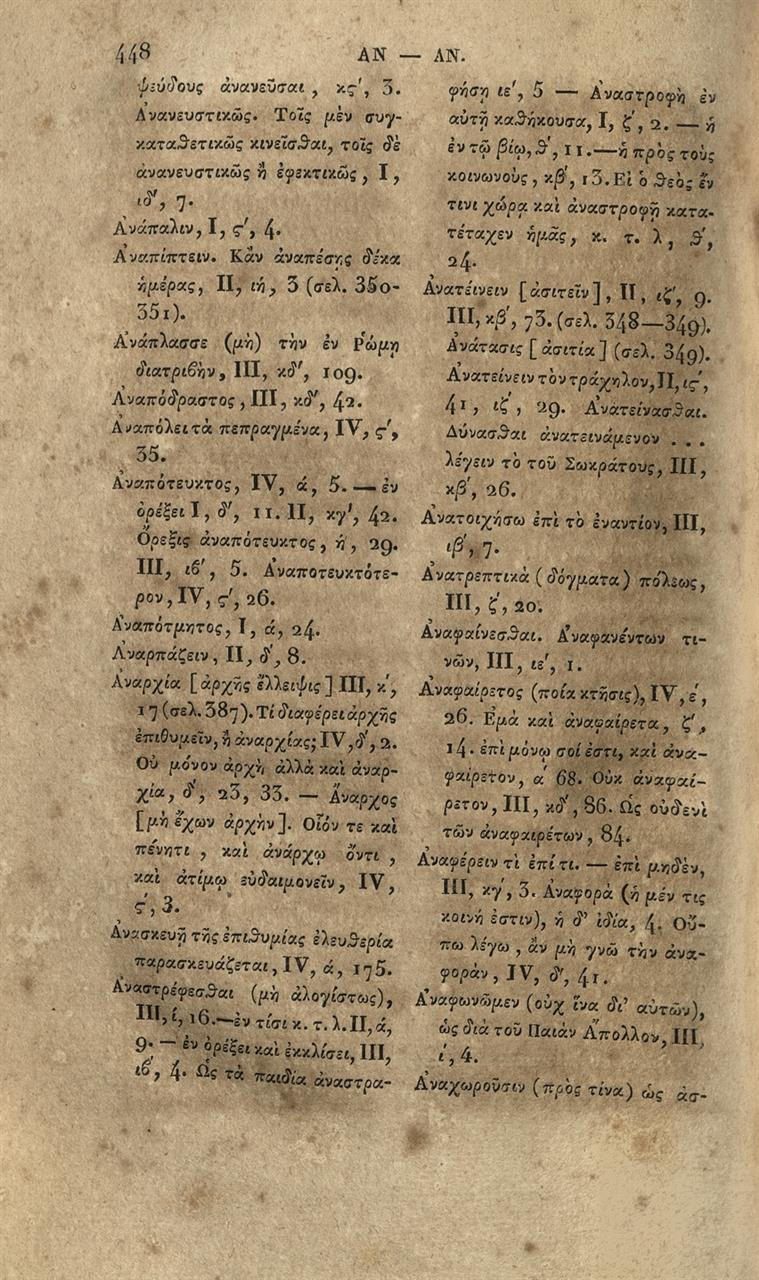 448
ΑΝ — ΑΝ.
ψεύδους ἀνανεῦσαι, κς΄, 3.
Ἀνανευστικῶς. Τοῖς μὲν συγ-
καταθετικῶς κινεῖσθαι, τοῖς δὲ
ἀνανευστικῶς ἢ ἐφεκτικῶς, Ι,
ιδ΄, 7.
Ἀνάπαλιν, Ι, ς΄, 4.
Ἀναπίπτειν. Κἂν ἀναπέσῃς δέκα
ἡμέρας, ΙΙ, ιή, 3 (σελ. 350-
351).
Ἀνάπλασσε (μὴ) τὴν ἐν Ῥώμῃ
διατριβὴν, ΙΙΙ, κδ΄, 109.
Ἀναπόδραστος, ΙΙΙ, κδ΄, 42.
Ἀναπόλει τὰ πεπραγμένα, IV, ς΄,
35.
Ἀναπότευκτος, IV, ά, 5. — ἐν
ὀρέξει Ι, δ΄, 11. ΙΙ, κγ΄, 42.
Ὄρεξις ἀναπότευκτος, ή, 29.
ΙΙΙ, ιβ΄, 5. Ἀναποτευκτότε-
ρον, IV, ς΄, 26.
Ἀναπότμητος, Ι, ά, 24.
Ἀναρπάζειν, ΙΙ, δ΄, 8.
Ἀναρχία [ἀρχῆς ἔλλειψις] ΙΙΙ, κ΄,
17 (σελ. 387). Τί διαφέρει ἀρχῆς
ἐπιθυμεῖν, ἢ ἀναρχίας; IV, δ΄, 2.
Οὐ μόνον ἀρχὴ ἀλλὰ καὶ ἀναρ-
χία, δ΄, 23, 33. — Ἄναρχος
[μὴ ἔχων ἀρχὴν]. Οἷόν τε καὶ
πένητι, καὶ ἀνάρχῳ ὄντι,
καὶ ἀτίμῳ εὐδαιμονεῖν, IV,
ς΄, 3.
Ἀνασκευῇ τῆς ἐπιθυμίας ἐλευθερία
παρασκευάζεται, IV, ά, 175.
Ἀναστρέφεσθαι (μὴ ἀλογίστως),
ΙΙΙ, ί, 16. — ἐν τίσι κ. τ. λ. ΙΙ, ά,
9. — ἐν ὀρέξει καὶ ἐκκλίσει, ΙΙΙ,
ιβ΄, 4. Ὡς τὰ παιδία ἀναστρα-
φήσῃ ιε΄, 5 — Ἀναστροφὴ ἐν
αὐτῇ καθήκουσα, Ι, ζ΄, 2. — ἡ
ἐν τῷ βίῳ, θ΄, 11. — ἡ πρὸς τοὺς
κοινωνοὺς, κβ΄, 13. Εἰ ὁ θεὸς ἔν
τινι χώρᾳ καὶ ἀναστροφῇ κατα-
τέταχεν ἡμᾶς, κ. τ. λ, θ΄,
24.
Ἀνατείνειν [ἀσιτεῖν], ΙΙ, ιζ΄, 9.
ΙΙΙ, κβ΄, 73. (σελ. 348—349).
Ἀνάτασις [ἀσιτία] (σελ. 349).
Ἀνατείνειν τὸν τράχηλον, ΙΙ, ις΄,
41, ιζ΄, 29. Ἀνατείνασθαι.
Δύνασθαι ἀνατεινάμενον ...
λέγειν τὸ τοῦ Σωκράτους, ΙΙΙ,
κβ΄, 26.
Ἀνατοιχήσω ἐπὶ τὸ ἐναντίον, ΙΙΙ,
ιβ΄, 7.
Ἀνατρεπτικὰ (δόγματα) πόλεως,
ΙΙΙ, ζ΄, 20.
Ἀναφαίνεσθαι. Ἀναφανέντων τι-
νῶν, ΙΙΙ, ιε΄, 1.
Ἀναφαίρετος (ποία κτῆσις), IV, ε΄,
26. Ἐμὰ καὶ ἀναφαίρετα, ζ΄,
14. ἐπὶ μόνῳ σοί ἐστι, καὶ ἀνα-
φαίρετον, ά 68. Οὐκ ἀναφαί-
ρετον, ΙΙΙ, κδ΄, 86. Ὡς οὐδενὶ
τῶν ἀναφαιρέτων, 84.
Ἀναφέρειν τὶ ἐπί τι. — ἐπὶ μηδὲν,
ΙΙΙ, κγ΄, 3. Ἀναφορὰ (ἡ μέν τις
κοινή ἐστιν), ἡ δ᾽ ἰδία, 4. Οὔ-
πω λέγω, ἂν μὴ γνῶ τὴν ἀνα-
φορὰν, IV, δ΄, 41.
Ἀναφωνῶμεν (οὐχ ἵνα δι᾽ αὐτῶν),
ὡς διὰ τοῦ Παιὰν Ἄπολλον, ΙΙΙ,
ί, 4.
Ἀναχωροῦσιν (πρὸς τίνα) ὡς ἀσ-